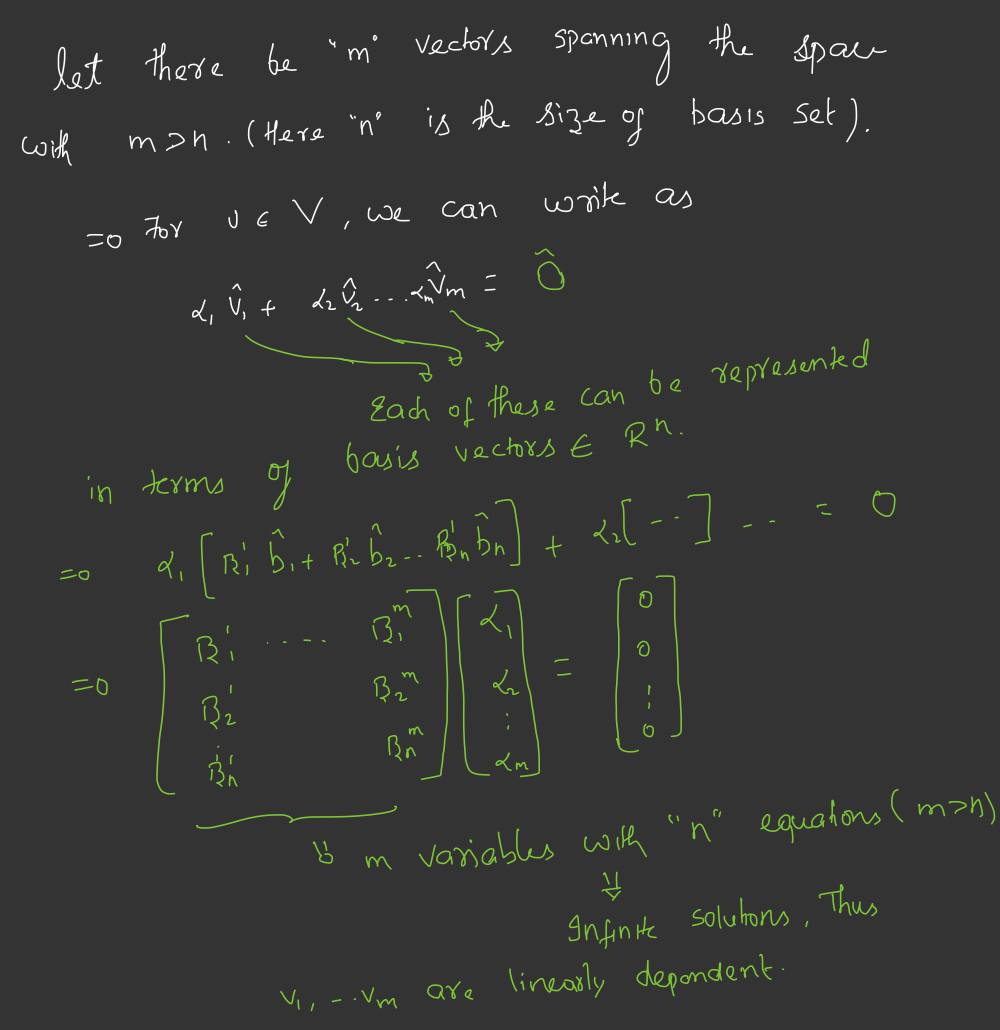 let there be "m" vectors spanning the space
with m>n. (Here "n" is the size of basis set).
⇒ For v ∈ V, we can write as
α₁ v̂₁ + α₂ v̂₂ ... αₘ v̂ₘ = 0̂
Each of these can be represented
in terms of basis vectors ∈ Rⁿ.
⇒ α₁ [B₁¹ b̂₁ + B₂¹ b̂₂ ... Bₙ¹ b̂ₙ] + α₂ [--] -- = 0
⇒ [B₁¹ .... B₁ᵐ] [α₁] = [0]
[B₂¹ B₂ᵐ] [α₂] [0]
[⋮] [⋮] [⋮]
[Bₙ¹ Bₙᵐ] [αₘ] [0]
⇓ m variables with "n" equations (m>n)
⇓
Infinite solutions, Thus
v₁, -..vₘ are linearly dependent.